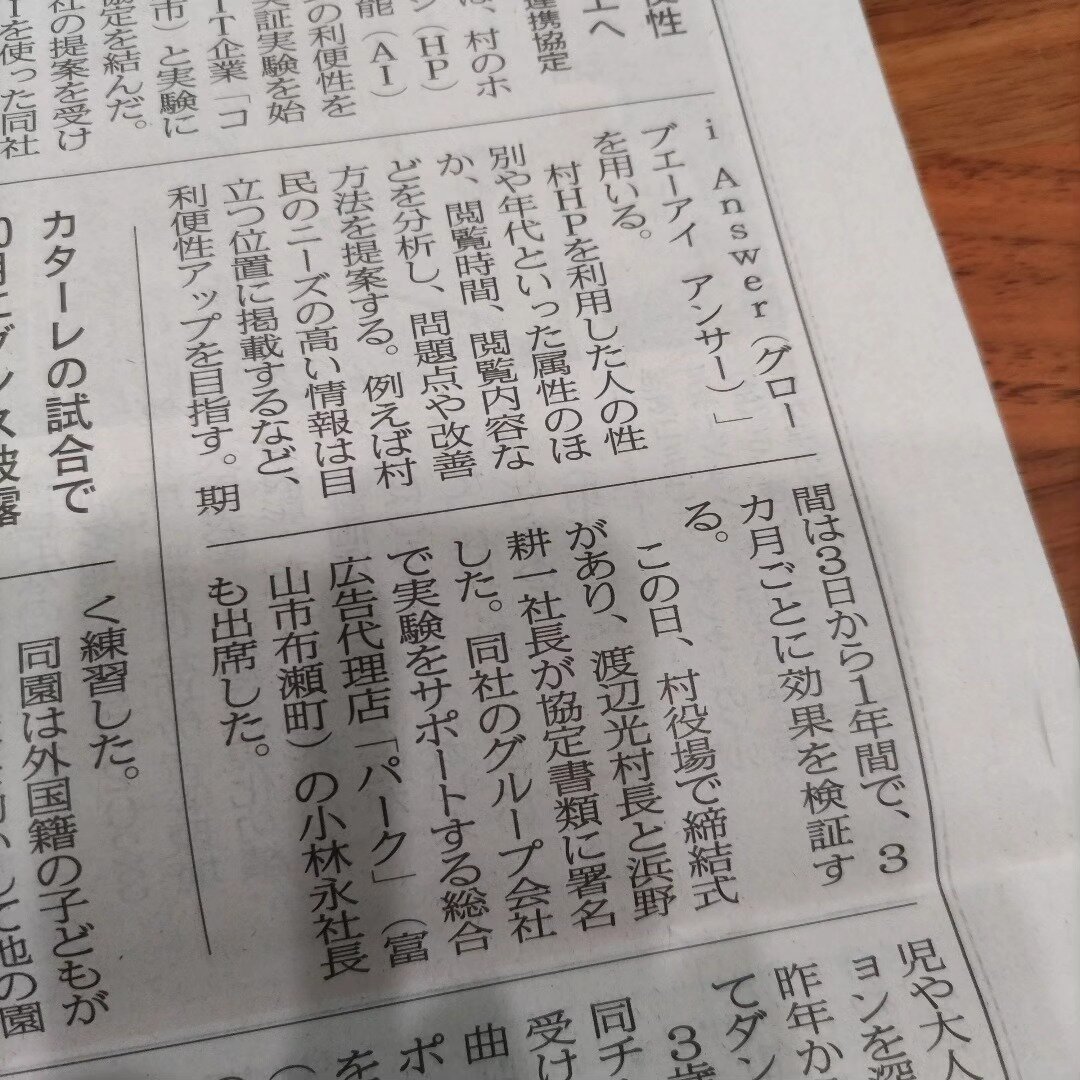 性
上へ
連携協定
、村のホ
(HP)
能(AI)
の利便性を
実証実験を始
IT企業「コ
市)と実験に
協定を結んだ。
社の提案を受け
を使った同社
i Answer(グロー
ブエーアイ アンサー)」
を用いる。
村HPを利用した人の性
別や年代といった属性のほ
か、閲覧時間、閲覧内容な
どを分析し、問題点や改善
方法を提案する。例えば村
民のニーズの高い情報は目
立つ位置に掲載するなど、
利便性アップを目指す。期
間は3日から1年間で、3
カ月ごとに効果を検証す
る。
この日、村役場で締結式
があり、渡辺光村長と浜野
耕一社長が協定書類に署名
した。同社のグループ会社
で実験をサポートする総合
広告代理店「パーク」(富
山市布瀬町)の小林永社長
も出席した。
カターレの試合で
く練習した。
同園は外国籍の子どもが
児や大人
ョンを深
昨年か
てダン
3歳
同チ
受け
曲
ポ
を